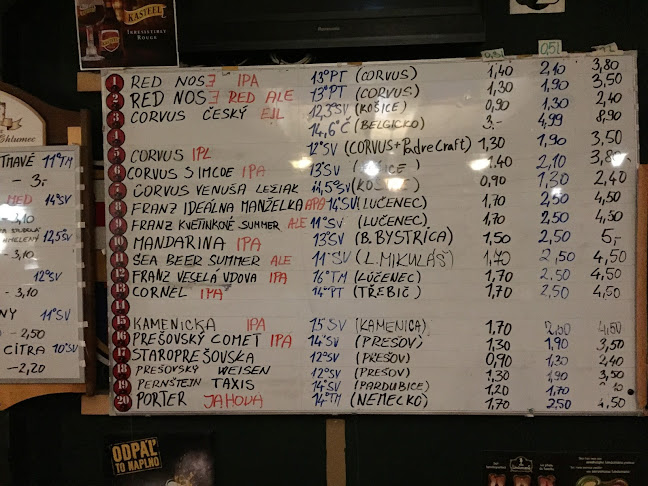 KASTEEL
IRRESISTIBLY
ROUGE
Panasonic
0,5L
1 RED NOSE IPA 13°PT (CORVUS) 1,40 2,10 3,80
2 RED NOSE RED ALE 13°PT (CORVUS) 1,30 1,90 3,50
3 CORVUS ČESKÝ EJL 12,3°SV (KOŠICE) 0,90 1,30 2,40
14,6°Č (BELGICKO) 3,- 4,99 8,90
5 CORVUS IPL 12°SV (CORVUS+PadreCraft) 1,30 1,90 3,50
6 CORVUS SIMCOE IPA 13°SV 1.40 2,10
7 CORVUS VENUŠA LEŽIAK 0,90 1,30 2,40
8 FRANZ IDEÁLNA MANŽELKA APA 14°SV (LUČENEC) 1,70 2,50 4,50
9 FRANZ KVETINKOVÉ SUMMER ALE 11°SV (LUČENEC) 1,70 2,50 4,50
10 MANDARINA IPA 13°SV (B.BYSTRICA) 1,50 2,50 5,-
11 SEA BEER SUMMER ALE 11°SV (L.MIKULÁŠ) 1,70 2,50 4,50
12 FRANZ VESELÁ VDOVA IPA 16°TM (LÚČENEC) 1,70 2,50 4,50
13 CORNEL IPA 14°PT (TŘEBIČ) 1,70 2,50 4,50
15 KAMENICKA IPA 15°SV (KAMENICA) 1,70 2,50 4,50
16 PREŠOVSKÝ COMET IPA 14°SV (PREŠOV) 1,30 1,90 3,50
17 STAROPREŠOVSKA 12°SV (PREŠOV) 0,90 1,30 2,40
18 PREŠOVSKÝ WEISEN 12°SV (PREŠOV) 1,30 1,90 3,50
19 PERNŠTEJN TAXIS 14°SV (PARDUBICE) 1,20 1,70
20 PORTER JAHODA 14°TM (NEMECKO) 1,70 2,50 4,50
Chlumec
TMAVÉ 11°TM
- 3,-
MED 14°SV
12,5°SV
- 3,10
12°SV
- 3,10
11°SV
- 2,50
CITRA 10°SV
- 2,20
ODPÁĽ
TO NAPLNO